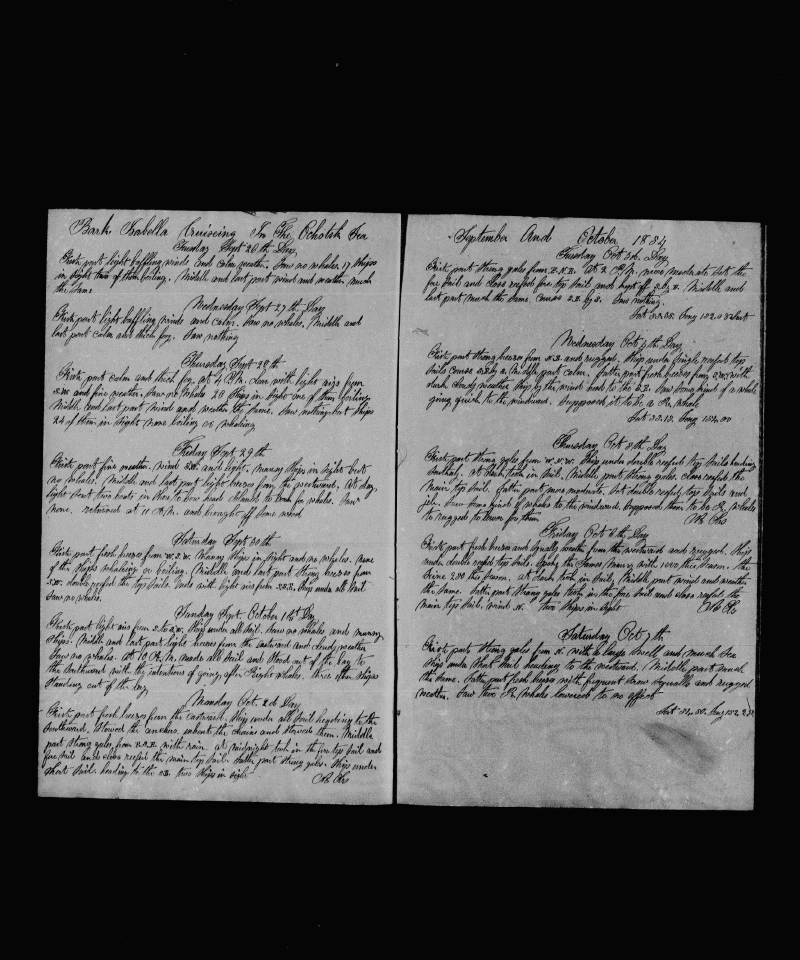 Bark Isabella Cruiseing In The Ochotsk Sea
Tuesday Sept 26th Day
First part light baffling winds and calm weather. Saw no whales. 17 Ships
in sight two of them boiling. Middle and last part wind and weather much
the same
Wednesday Sept 27th Day
First part light baffling winds and calm. Saw no whales. Middle and
last part calm and thick fog. Saw nothing
Thursday Sept 28th
First part calm and thick fog. at 4 P.M. clear with light airs from
S.W. and fine weather. Saw no whales 20 Ships in sight one of them boiling
Middle and last part wind and weather the same. Saw nothing but Ships
24 of them in sight none boiling or whaling
Friday Sept 29th
First part fine weather. wind and light. many Ships in sight but
no whales. Middle and last part light breezes from the westward. At day
light sent two boats in to head Islands to look for whales. Saw
none. returned at 11 A.M. and brought off some wood
Saturday Sept 30th
First part fresh breezes from W.S.W. Many Ships in sight and no whales. none
of the Ships whaleing or boiling. Middle and last part strong breezes from
S.W. double reefed the top sails. Ends with light airs from Ship under all sail
Saw no whales.
Sunday Sept. October 1st Day
First part light airs from S. to S.W. Ship under all sail. Saw no whales and many
Ships. Middle and last part light breezes from the eastward and cloudy weather
Saw no whales. At 10 A.M. made all sail and stood out of the bay to
the Southward with the intentions of going after Right whales. three other Ships
standing out of the bay
Monday Oct. 2d Day
First part fresh breezes from the eastward. Ship under all sail heading to the
Southward. Stowed the anchors. unbent the chains and stowed them. Middle
part strong gales from E.N.E. with rain. at midnight took in the fore top sail and
fore sail and close reefed the main top sail. Latter part strong gales. Ship under
short sail. heading to the two Ships in sight
September And October 1854
Tuesday Oct 3d. Day
First part strong gales from E.N.E. At 8 P.M. more moderate set the
fore sail and close reefed fore top sail and kept off Middle and
last part much the same. course S.E. by S. Saw nothing.
Wednesday Oct 4th Day
First part strong breezes from and rugged. Ship under single reefed top
sails course Middle part calm. Latter part fresh breezes from S.W. with
dark cloudy weather Ship by the wind head to the S.E. Saw some kind of a whale
going quick to the windward. Supposed it to be a Rt. whale
Thursday Oct 5th Day
First part strong gales from W.N.W. Ship under double reefed top sails heading
Southerly. at dark took in sail. Middle part strong gales. close reefed the
main top sail. Latter part more moderate. Set double reefed top sails and
jib. Saw some kind of whales to the windward. Supposed them to be Rt. whales
to rugged to lower for them
Friday Oct 6th Day
First part fresh breezes and squally weather from the westward and rugged. Ship
under double reefed top sails. Spoke the James Maury with this season. the
this season. at dark took in sail. Middle part winds and weather
the same. Latter part strong gales took in the fore sail and close reefed the
main top sail. wind N. two Ships in sight
Saturday Oct 7th
First part strong gales from N. with a large swell and much sea
Ship under short sail heading to the westward. Middle part much
the same. Latter part fresh breezes with frequent snow squalls and rugged
weather. Saw two Rt. whales lowered to no effect